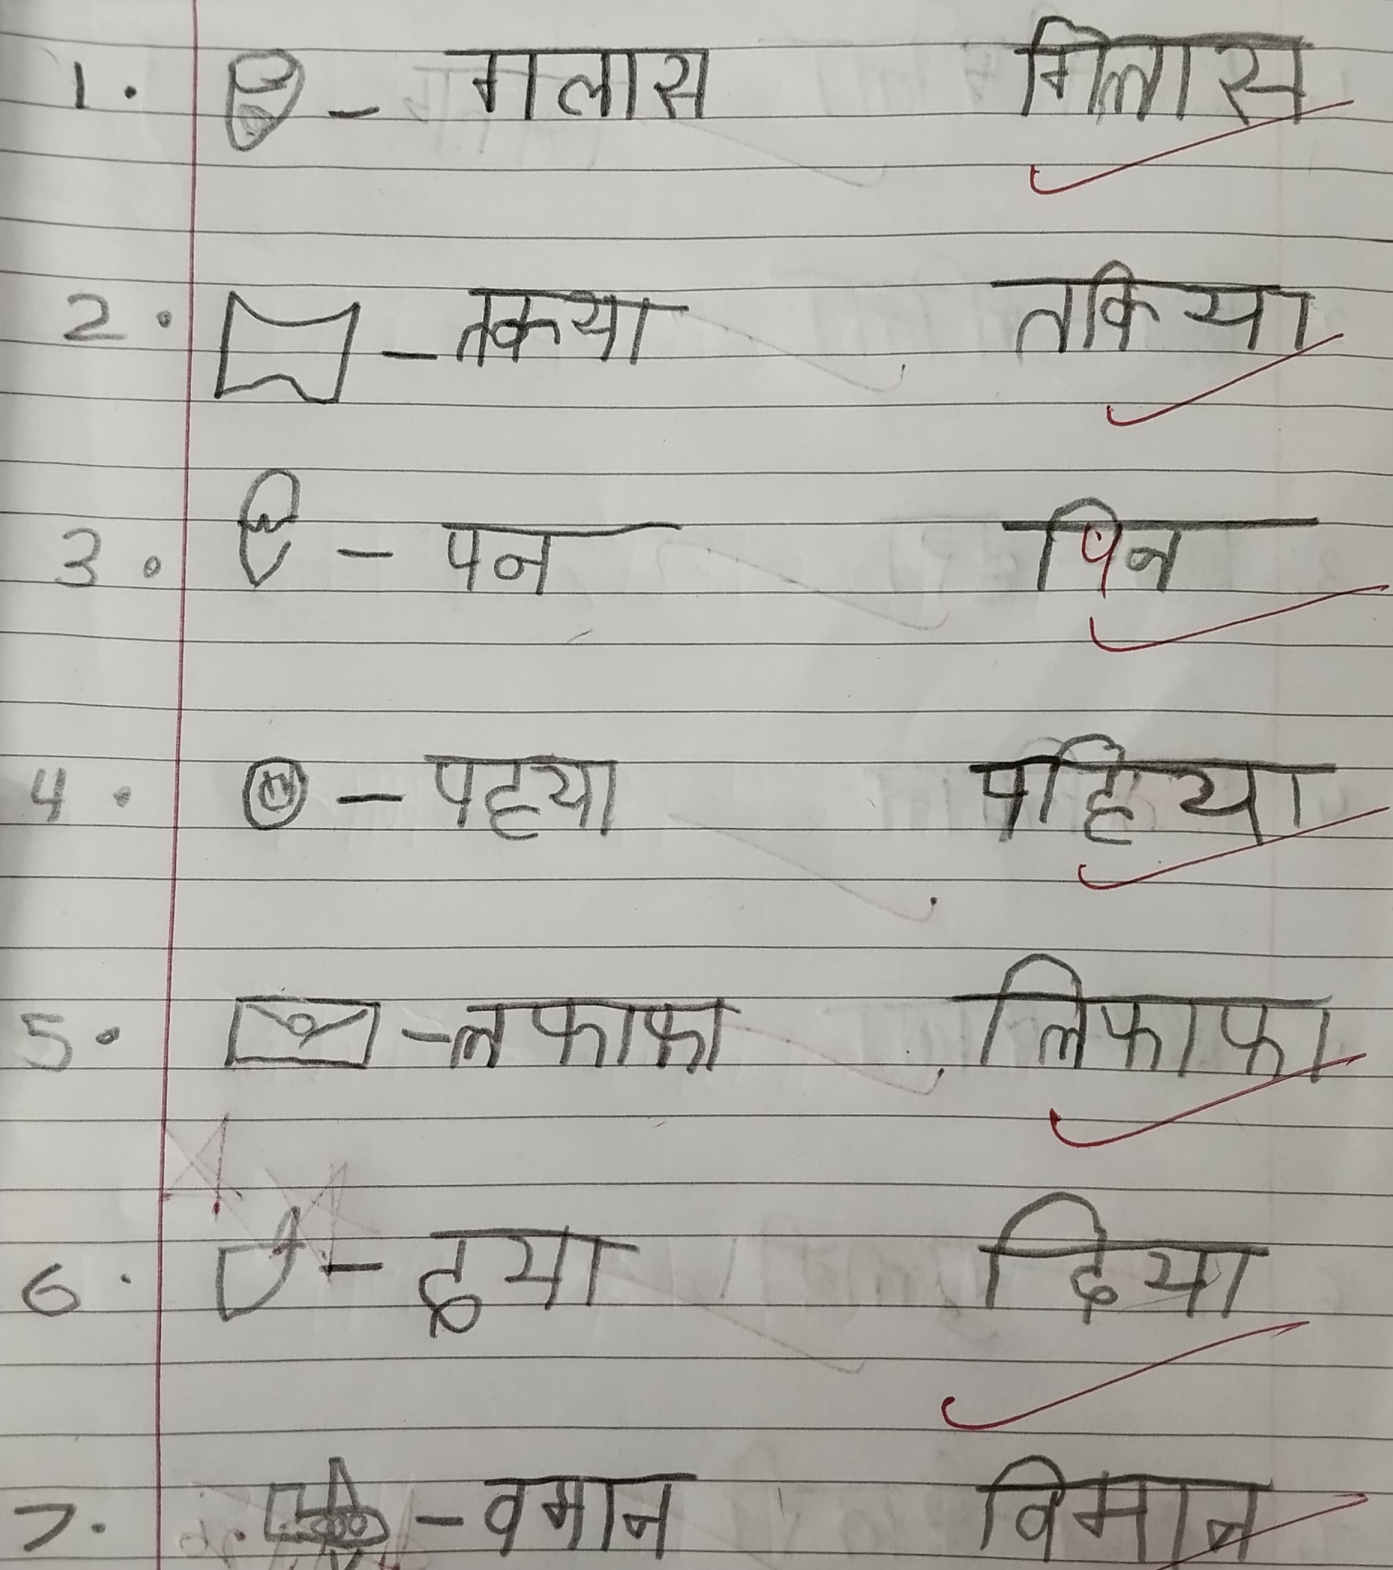 1. - गलास गिलास
2. - तकया तकिया
3. - पन पिन
4. - पहया पहिया
5. - लफाफा लिफाफा
6. - दया दिया
7. - वमान विमान